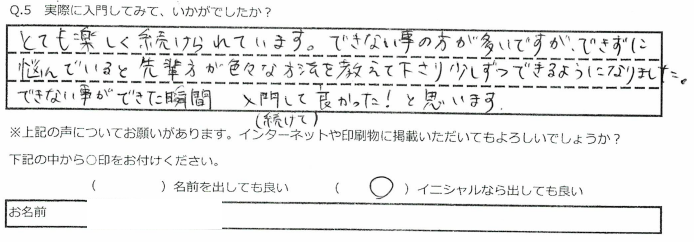 Q.5 実際に入門してみて、いかがでしたか？
とても楽しく続けられています。できない事の方が多いですが、できずに
悩んでいると先輩方が色々な方法を教えて下さり少しずつできるようになりました。
できない事ができた瞬間 入門して良かった！と思います。
(続けて)
※上記の声についてお願いがあります。インターネットや印刷物に掲載いただいてもよろしいでしょうか？
下記の中から○印をお付けください。
（ ）名前を出しても良い （ ○ ）イニシャルなら出しても良い
お名前